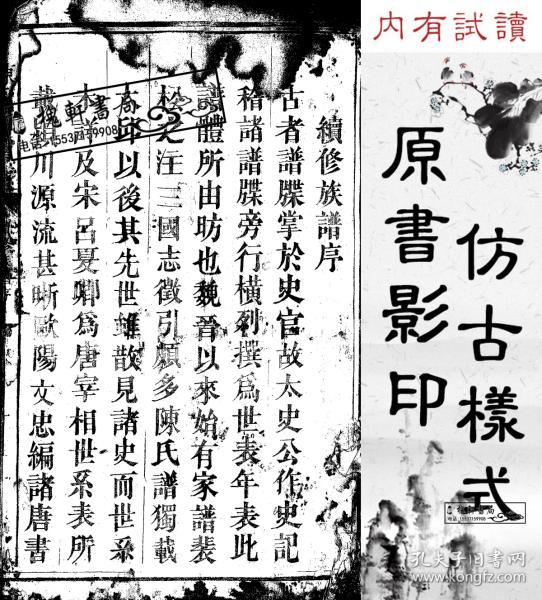 續修族譜序
古者譜牒掌於史官故太史公作史記
稽諸譜牒旁行橫列撰爲世表年表此
譜體所由昉也魏晉以來始有家譜裴
松之注三國志徵引頗多陳氏譜獨載
高邱以後其先世雖散見諸史而世系
及宋呂夏卿爲唐宰相世系表所
川源流甚晰歐陽文忠編諸唐書
軒書
電話:15537159908
内有試讀
仿古樣式
原書影印
電話:15537159908
孔夫子旧书网
www.kongfz.com